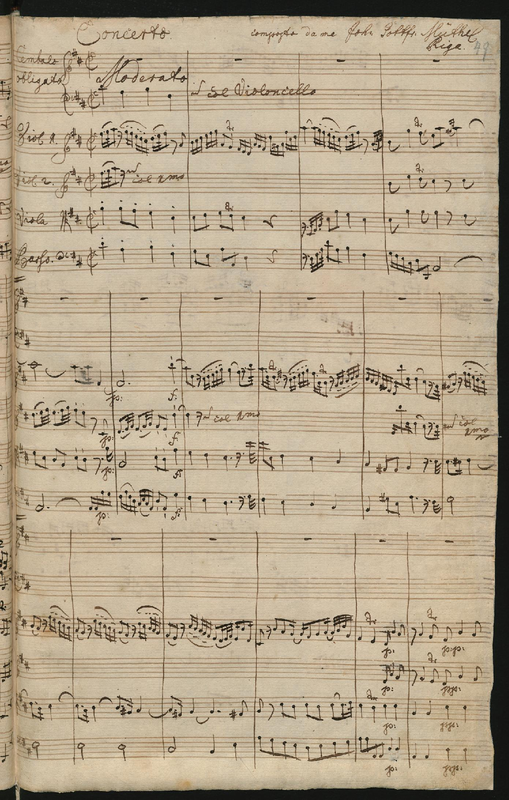 Concerto composto da me Joh. Gottfr. Müthel
Riga
49
Cembalo
obligato
Moderato
col Violoncello
Viol 1.
Viol 2.
col 1mo
Viola
Basso.
p:
f.
p:
f.
col 1mo
col
1mo
p:
f.
p:
f.
p:
pp:
p:
pp:
p:
pp:
p:
pp: